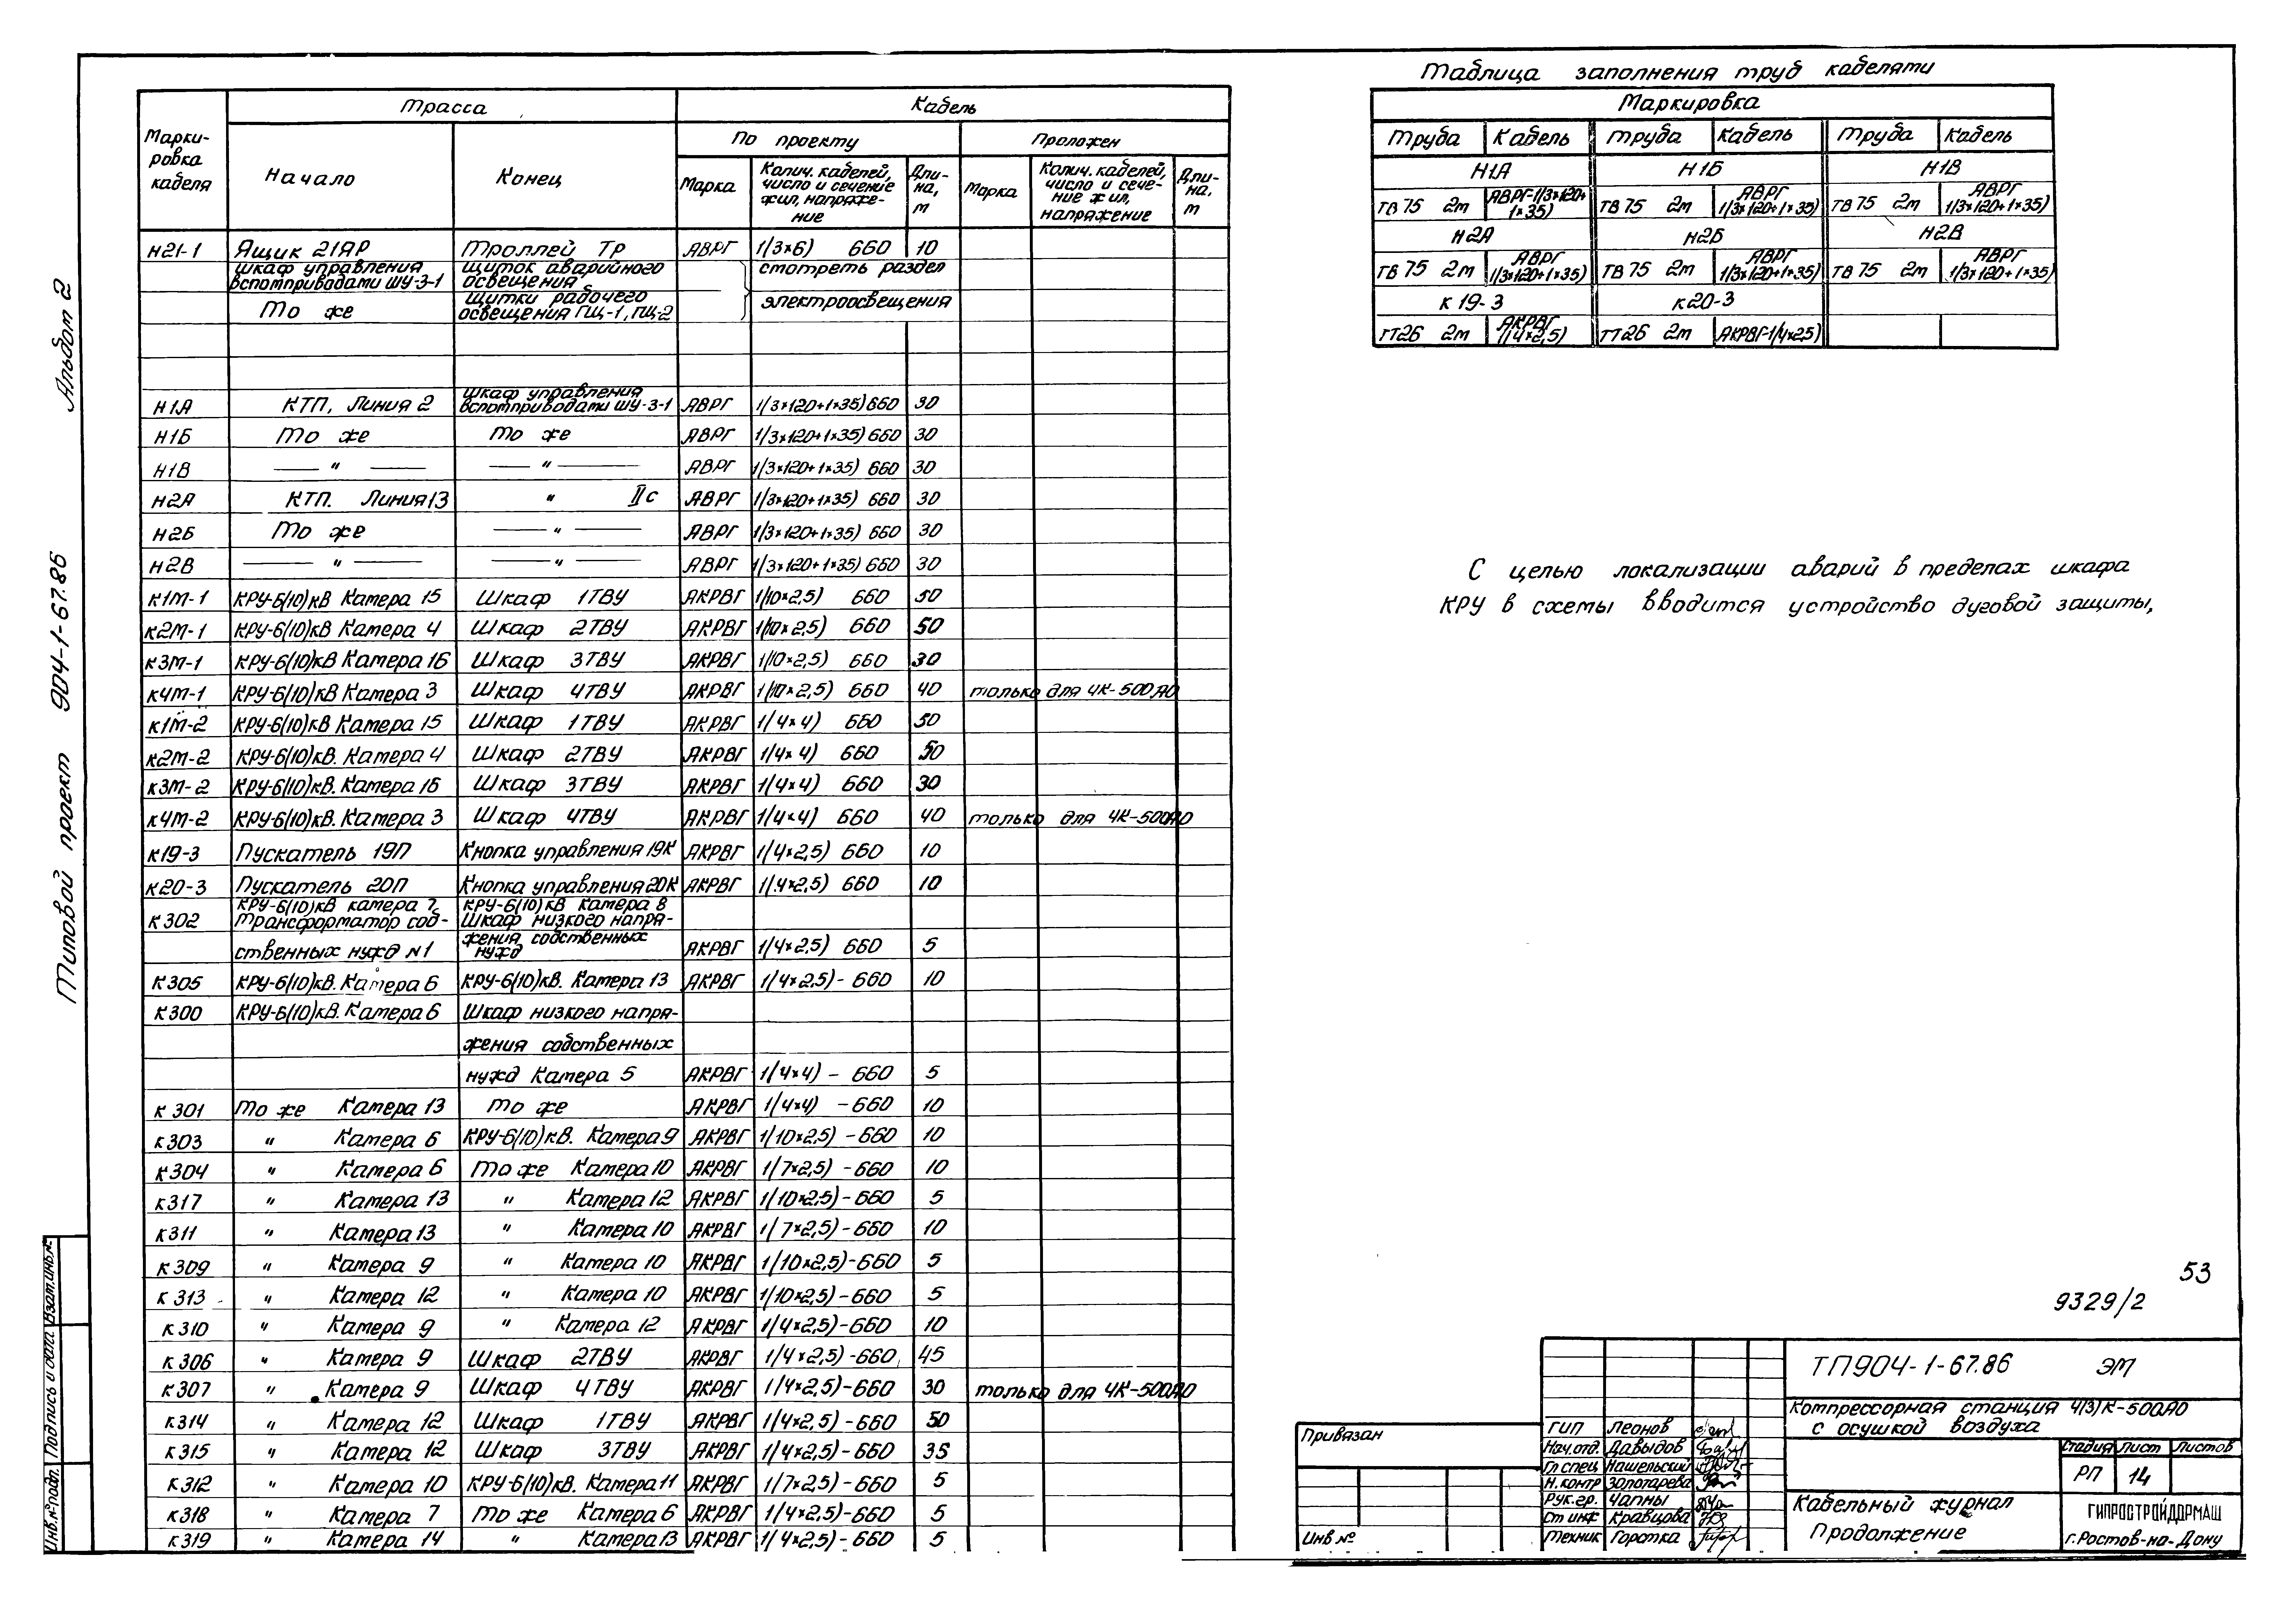 Типовой проект 904-1-67.86 Альбом 2
Марки-
ровка
кабеля
Трасса
Кабель
Начало
Конец
По проекту
Проложен
Марка
Колич. кабелей,
число и сечение
жил, напряже-
ние
Дли-
на,
м
Марка
Колич. кабелей,
число и сече-
ние жил,
напряжение
Дли-
на,
м
Н21-1 Ящик 21ЯР Троллей Тр АВРГ 1(3×6) 660 10
шкаф управления вспомприводами ШУ-3-1 щиток аварийного освещения смотреть раздел
То же Щитки рабочего освещения ГЩ-1, ГЩ-2 электроосвещения
Н1А КТП, Линия 2 Шкаф управления вспомприводами ШУ-3-1 АВРГ 1(3×120+1×35) 660 30
Н1Б То же То же АВРГ 1(3×120+1×35) 660 30
Н1В — " — — " — АВРГ 1(3×120+1×35) 660 30
Н2А КТП. Линия 13 " IIс АВРГ 1(3×120+1×35) 660 30
Н2Б То же — " — АВРГ 1(3×120+1×35) 660 30
Н2В — " — — " — АВРГ 1(3×120+1×35) 660 30
К1М-1 КРУ-6(10)кВ Камера 15 Шкаф 1ТВУ АКРВГ 1(10×2,5) 660 50
К2М-1 КРУ-6(10)кВ Камера 4 Шкаф 2ТВУ АКРВГ 1(10×2,5) 660 50
К3М-1 КРУ-6(10)кВ Камера 16 Шкаф 3ТВУ АКРВГ 1(10×2,5) 660 30
К4М-1 КРУ-6(10)кВ Камера 3 Шкаф 4ТВУ АКРВГ 1(10×2,5) 660 40 только для 4К-500АО
К1М-2 КРУ-6(10)кВ Камера 15 Шкаф 1ТВУ АКРВГ 1(4×4) 660 50
К2М-2 КРУ-6(10)кВ. Камера 4 Шкаф 2ТВУ АКРВГ 1(4×4) 660 50
К3М-2 КРУ-6(10)кВ. Камера 16 Шкаф 3ТВУ АКРВГ 1(4×4) 660 30
К4М-2 КРУ-6(10)кВ. Камера 3 Шкаф 4ТВУ АКРВГ 1(4×4) 660 40 только для 4К-500АО
К19-3 Пускатель 19П Кнопка управления 19К АКРВГ 1(4×2,5) 660 10
К20-3 Пускатель 20П Кнопка управления 20К АКРВГ 1(4×2,5) 660 10
К302 КРУ-6(10)кВ камера 7, трансформатор соб- КРУ-6(10)кВ камера 8 Шкаф низкого напря-
ственных нужд №1 жения собственных нужд АКРВГ 1(4×2,5) 660 5
К305 КРУ-6(10)кВ. Камера 6 КРУ-6(10)кВ. Камера 13 АКРВГ 1(4×2,5)- 660 10
К300 КРУ-6(10)кВ. Камера 6 Шкаф низкого напря-
жения собственных
нужд Камера 5 АКРВГ 1(4×4) - 660 5
К301 То же Камера 13 То же АКРВГ 1(4×4) -660 10
К303 " Камера 6 КРУ-6(10)кВ. Камера 9 АКРВГ 1(10×2,5) -660 10
К304 " Камера 6 То же Камера 10 АКРВГ 1(7×2,5) -660 10
К317 " Камера 13 " Камера 12 АКРВГ 1(10×2,5)-660 5
К311 " Камера 13 " Камера 10 АКРВГ 1(7×2,5)-660 10
К309 " Камера 9 " Камера 10 АКРВГ 1(10×2,5)-660 5
К313 " Камера 12 " Камера 10 АКРВГ 1(10×2,5)-660 5
К310 " Камера 9 " Камера 12 АКРВГ 1(4×2,5)-660 10
К306 " Камера 9 Шкаф 2ТВУ АКРВГ 1(4×2,5)-660 45
К307 " Камера 9 Шкаф 4ТВУ АКРВГ 1(4×2,5)-660 30 только для 4К-500АО
К314 " Камера 12 Шкаф 1ТВУ АКРВГ 1(4×2,5)-660 50
К315 " Камера 12 Шкаф 3ТВУ АКРВГ 1(4×2,5)-660 35
К312 " Камера 10 КРУ-6(10)кВ. Камера 11 АКРВГ 1(7×2,5)-660 5
К318 " Камера 7 То же Камера 6 АКРВГ 1(4×2,5)-660 5
К319 " Камера 14 " Камера 13 АКРВГ 1(4×2,5)-660 5
Таблица заполнения труб кабелями
Маркировка
Труба Кабель Труба Кабель Труба Кабель
Н1А Н1Б Н1В
ТВ75 2м АВРГ-1(3×120+1×35) ТВ75 2м АВРГ 1(3×120+1×35) ТВ75 2м АВРГ 1(3×120+1×35)
Н2А Н2Б Н2В
ТВ75 2м АВРГ 1(3×120+1×35) ТВ75 2м АВРГ 1(3×120+1×35) ТВ75 2м АВРГ 1(3×120+1×35)
К19-3 К20-3
ТТ26 2м АКРВГ 1(4×2,5) ТТ26 2м АКРВГ-1(4×2,5)
С целью локализации аварий в пределах шкафа
КРУ в схемы вводится устройство дуговой защиты,
53
9329/2
ТП904-1-67.86 ЭМ
Компрессорная станция 4(3)К-500АО
с осушкой воздуха
Стадия Лист Листов
РП 14
Кабельный журнал
Продолжение
ГИПРОСТРОЙДОРМАШ
г.Ростов-на-Дону
Привязан
Инв №
ГИП Леонов
Нач.отд. Давыдов
Гл спец Нашельский
Н.контр Золотарева
Рук.гр. Чапны
Ст инж Кравцова
Техник Горотка
Инв.№подл. Подпись и дата Взам.инв.№